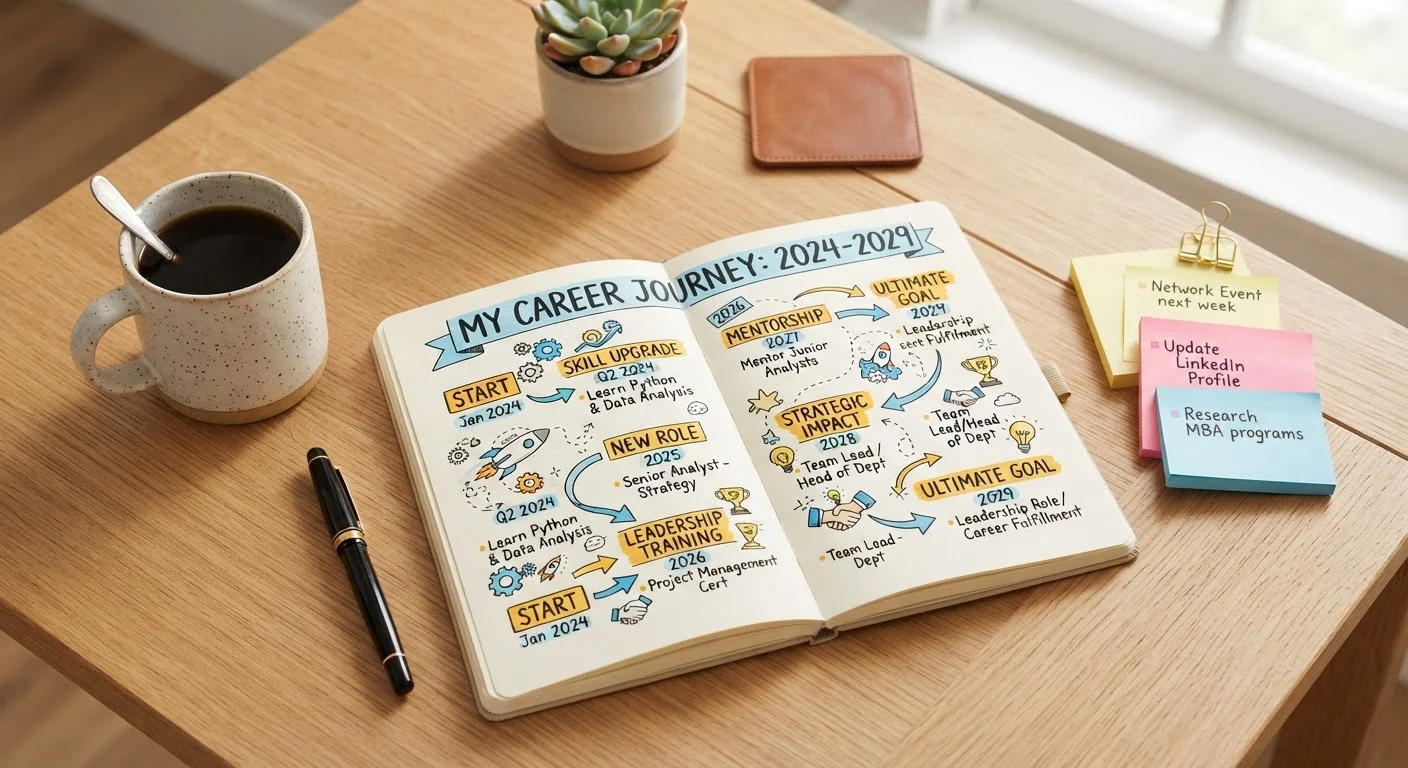 MY CAREER JOURNEY: 2024-2029
START
Jan 2024
SKILL UPGRADE
Q2 2024
Learn Python
& Data Analysis
NEW ROLE
2025
Senior Analyst-
Strategy
Q2 2024
Learn Python
& Data Analysis
LEADERSHIP
TRAINING
2026
Project Management
Cert
START
Jan 2024
2026
MENTORSHIP
2027
Mentor Junior
Analysts
ULTIMATE
GOAL
Leadership
Fulfillment
STRATEGIC
IMPACT
2028
Team Lead/
Head of Dept
Team
Lead/Head
of Dept
ULTIMATE GOAL
2029
Leadership Role/
Career Fulfillment
Team Lead-
Dept
Network Event
next week
Update
LinkedIn
Profile
Research
MBA programs